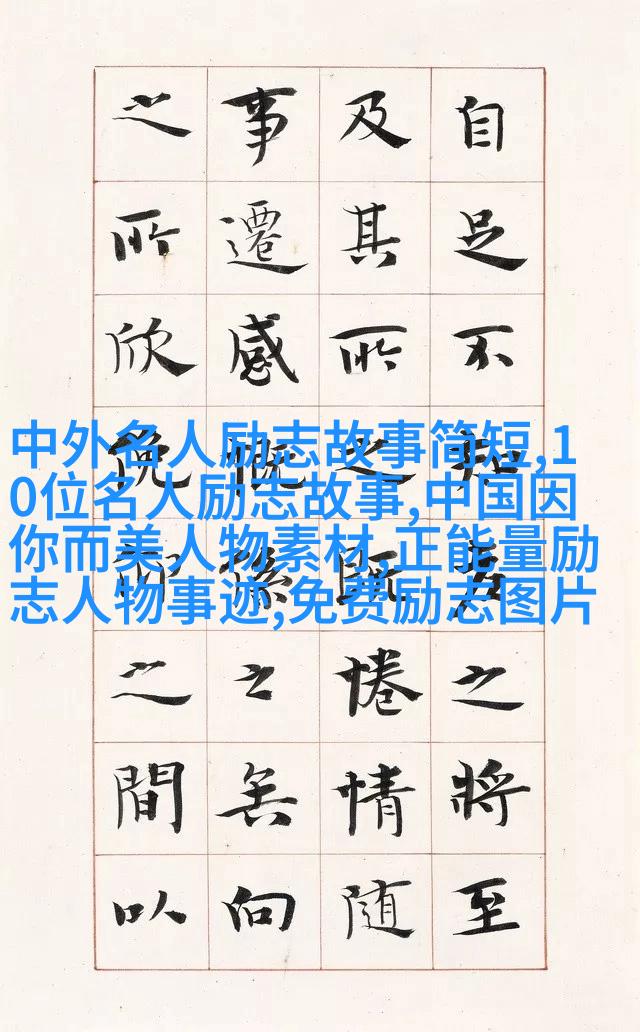 自足不知老之將至
及其所之既惓情隨
事遷感慨係之矣向
之所欣俛仰之間以
中外名人励志故事简短,1
0位名人励志故事,中国因
你而美人物素材,正能量励
志人物事迹,免费励志图片